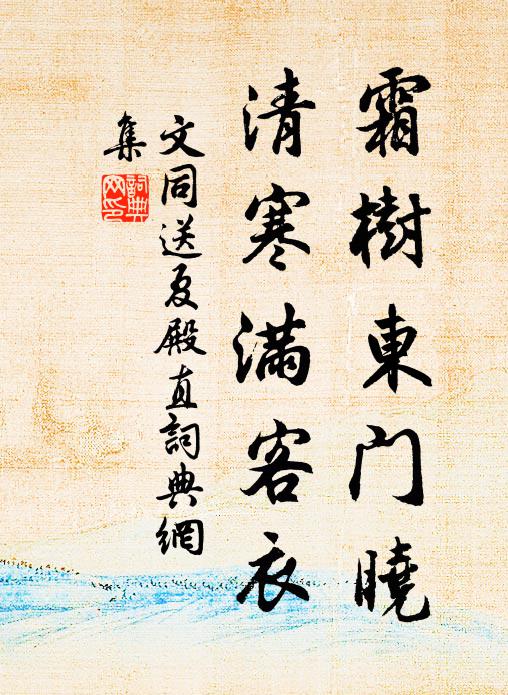 霜樹東門曉
清寒滿客衣
文同送夏殿直詞典網
集
詞典
网印